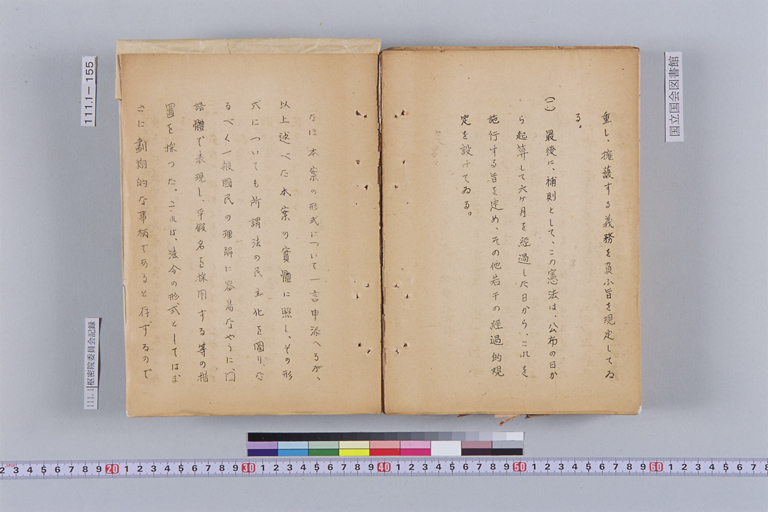 重し、擁護する義務を負ふ旨を規定してゐ
る。
(一) 最後に、補則として、この憲法は、公布の日か
ら起算して六ヶ月を経過した日から、これを
施行する旨を定め、その他若干の経過的規
定を設けてゐる。
なほ本案の形式について一言申添へるが、
以上述べた本案の實體に照し、その形
式についても所謂法の民主化を圖りな
るべく一般國民の理解に容易なやうに、口
語體で表現し、平假名を採用する等の措
置を採つた。これは、法令の形式としてはま
さに劃期的な事柄であると存ずるので
111.1-155
国立国会図書館
111.1 枢密院委員会記録
2 3 4 5 6 7 8 9 20 1 2 3 4 5 6 7 8 9 30 1 2 3 4 5 6 7 8 9 40 1 2 3 4 5 6 7 8 9 50 1 2 3 4 5 6 7 8 9 60 1 2 3 4 5 6 7 8